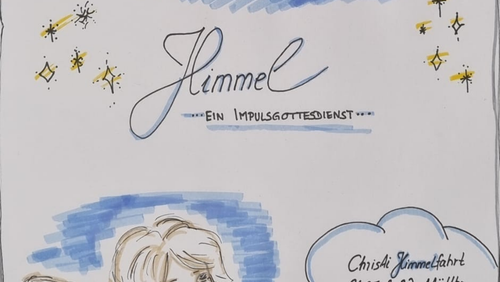 Himmel
...EIN IMPULSGOTTESDIENST...
Christi Himmelfahrt